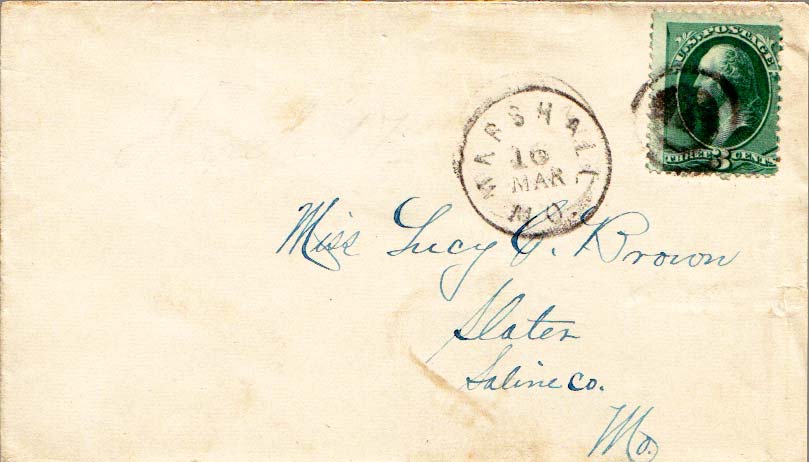 U.S. POSTAGE
THREE 3 CENTS
MARSHALL
16
MAR
MO.
Miss Lucy C. Brown
Slater
Saline co.
Mo.